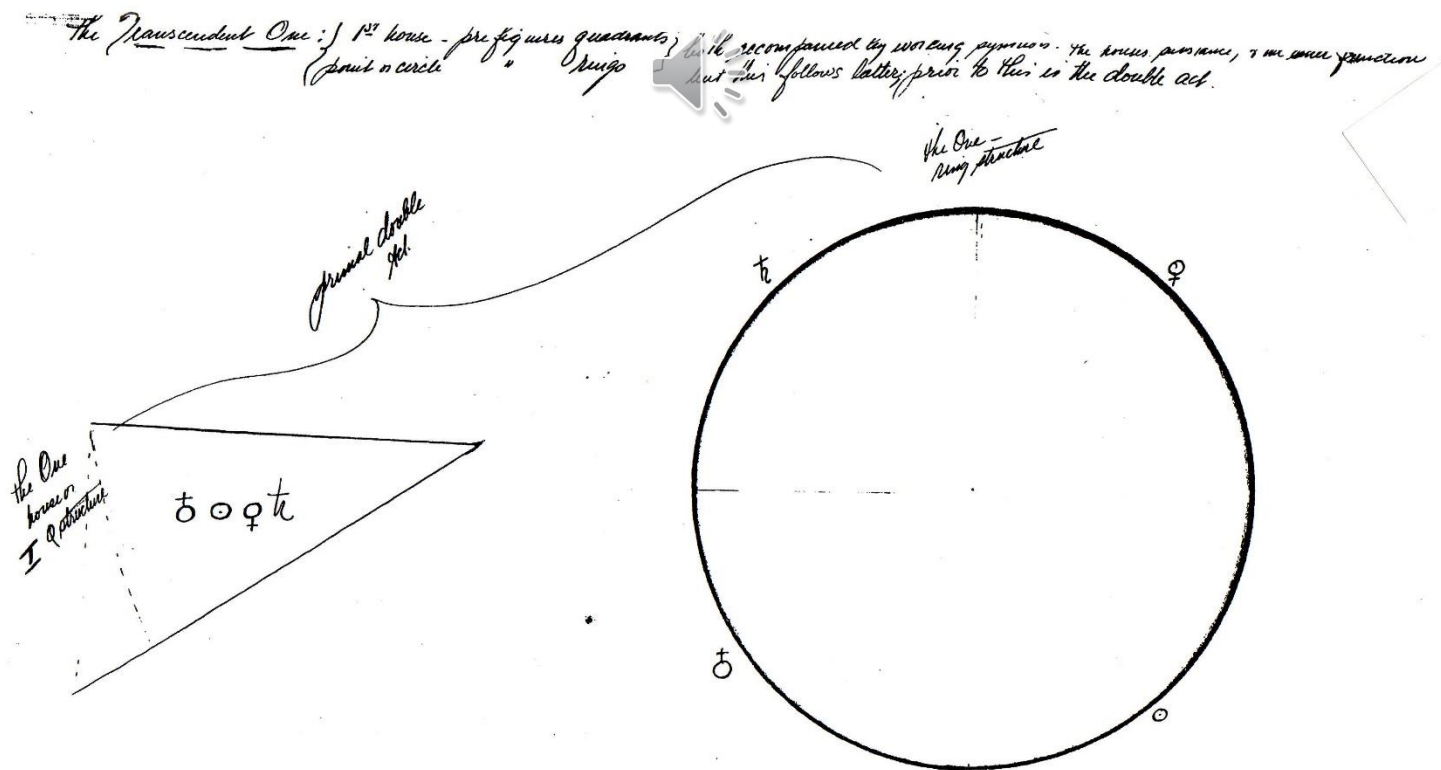 The Transcendent One: { 1st house - prefigures quadrants } both accompanied by working symbols. The houses substance, & the inner function
{ point or circle " rings but this follows latter; prior to this is the double act.
the One -
ring structure
primal double
Act.
♄
♀
the One
house or
I Q structure
♁ ☉ ♀ ♄
♁
☉